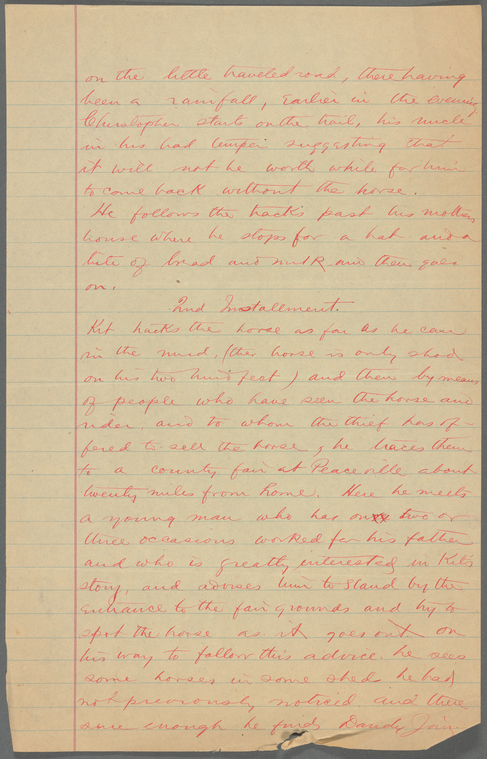 on the little traveled road, there having
been a rainfall, earlier in the evening,
Christopher starts on the trail, his uncle
in his bad temper suggesting that
it will not be worth while for him
to come back without the horse.
He follows the tracks past his mothers
house where he stops for a hat and a
bite of bread and milk and then goes
on.
2nd Installment.
Kit tracks the horse as far as he can
in the mud, (the horse is only shod
on his two hind feet) and then by means
of people who have seen the horse and
rider, and to whom the thief has of-
fered to sell the horse, he traces them
to a county fair at Peaceville about
twenty miles from home. Here he meets
a young man who has on two or
three occasions worked for his father
and who is greatly interested in Kit's
story, and advises him to stand by the
entrance to the fair grounds and try to
spot the horse as it goes out on
his way to follow this advice he sees
some horses in some sheds he had
not previously noticed and there
sure enough he finds Dandy Jim